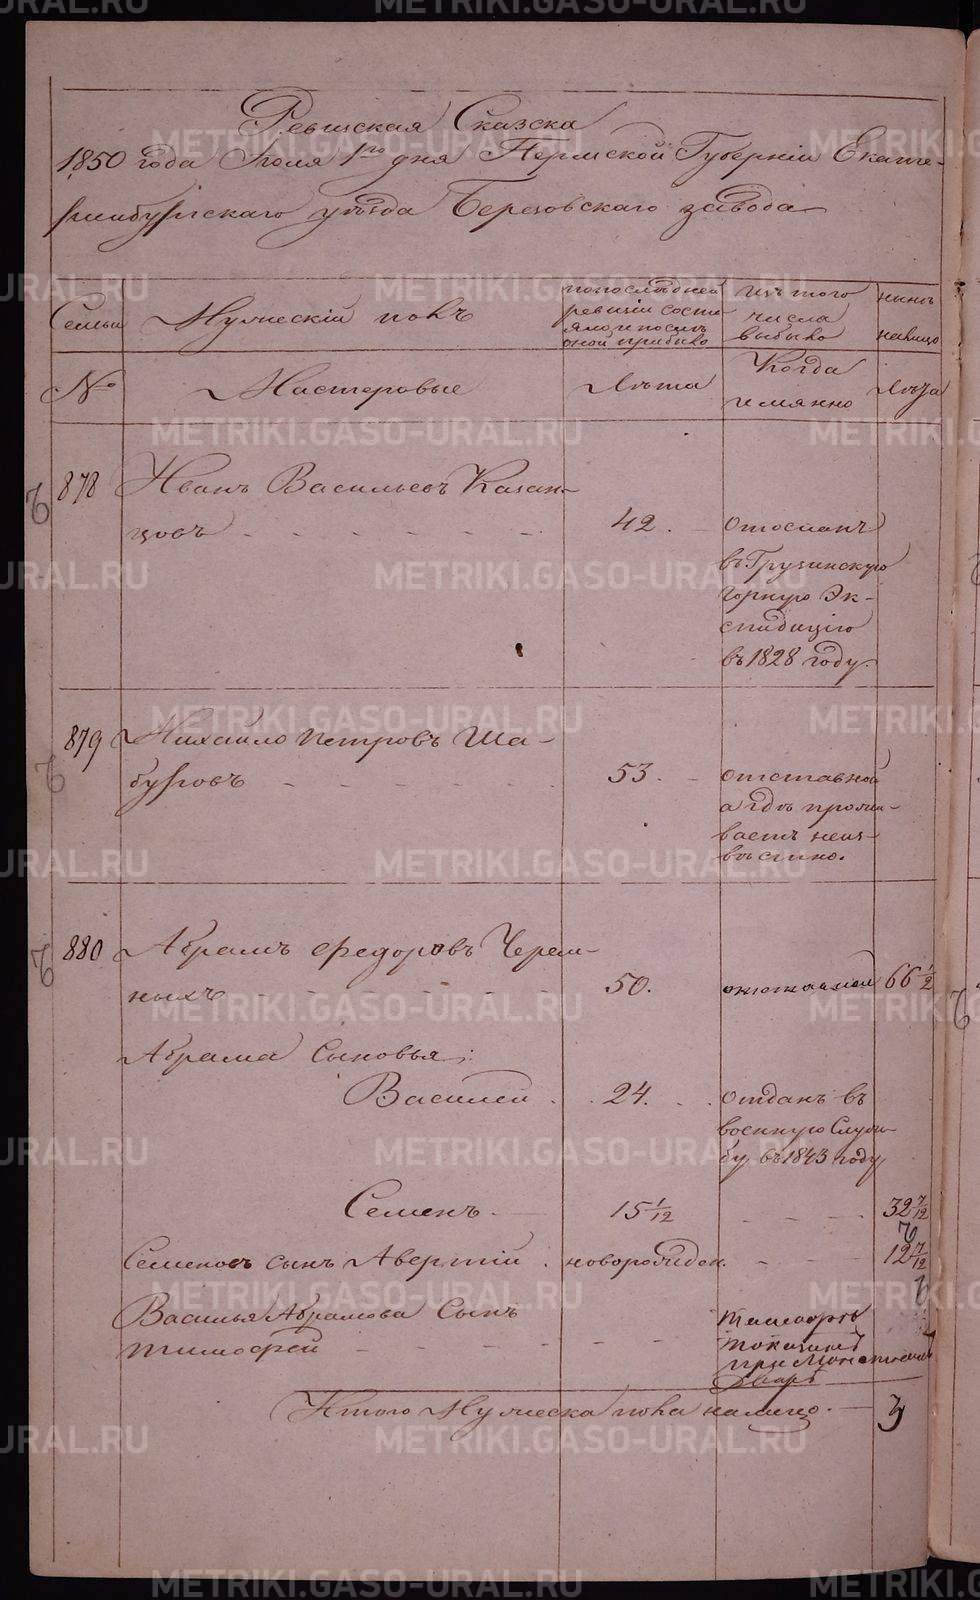 METRIKI.GASO-URAL.RU
Ревизская Сказка
1850 года Июля 1го дня Пермской Губерніи Екате-
ринбургскаго уѣзда Березовскаго завода
Семьи
Мужескій полъ
по послѣдней
ревизіи состо-
яло и послѣ
оной прибыло
изъ того
числа
выбыло
нынѣ
налицо
№
Мастеровые
Лѣта
Когда
имянно
Лѣта
878 Иванъ Васильевъ Казан-
цовъ - - - - - - 42. - отосланъ
въ Грузинскую
горную Эк-
спедицію
въ 1828 году.
879 Михайло Петровъ Ша-
буровъ - - - - - 53. - отставной
а гдѣ прожи-
ваетъ неиз-
вѣстно.
880 Абрамъ Федоровъ Черем-
ныхъ - - - - - - 50. отставной 66 1/2
Абрама Сыновья:
Василей . . 24. . . отданъ въ
военную Служ-
бу въ 1843 году
Семенъ. 15 1/12 - - - - 32 7/12
Семеновъ сынъ Аверкій . новорожден. - - - 12 7/12
Василья Абрамова Сынъ
Тимофей - - - - - -
показанъ
при Монетномъ
Дворѣ
Итого Мужеска пола налицо. — 3